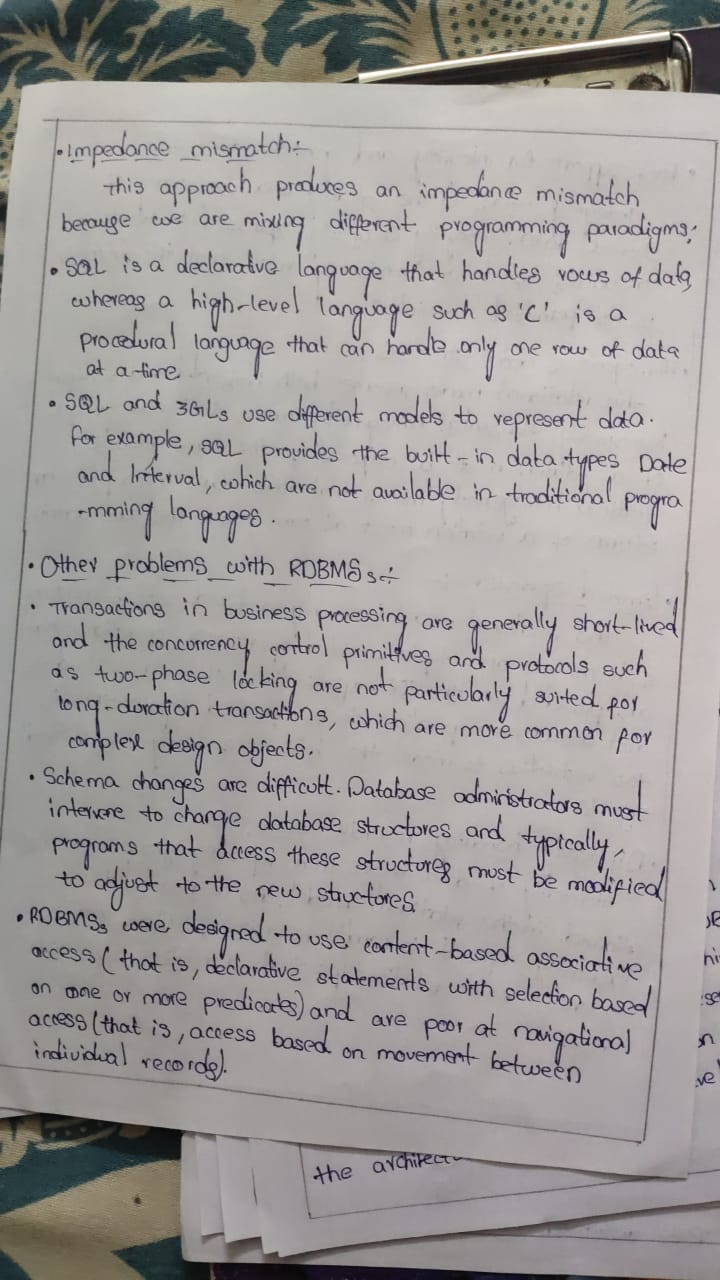 • Impedance mismatch:-
This approach produces an impedance mismatch
because we are mixing different programming paradigms;
• SQL is a declarative language that handles rows of data,
whereas a high-level language such as 'C' is a
procedural language that can handle only one row of data
at a time.
• SQL and 3GLs use different models to represent data.
For example, SQL provides the built-in data types Date
and Interval, which are not available in traditional progra
-mming languages.
• Other problems with RDBMSs:-
• Transactions in business processing are generally short-lived
and the concurrency control primitives and protocols such
as two-phase locking are not particularly suited for
long-duration transactions, which are more common for
complex design objects.
• Schema changes are difficult. Database administrators must
intervene to change database structures and typically,
programs that access these structures must be modified
to adjust to the new structures
• RDBMSs were designed to use content-based associative
access (that is, declarative statements with selection based
on one or more predicates) and are poor at navigational
access (that is, access based on movement between
individual records).
the